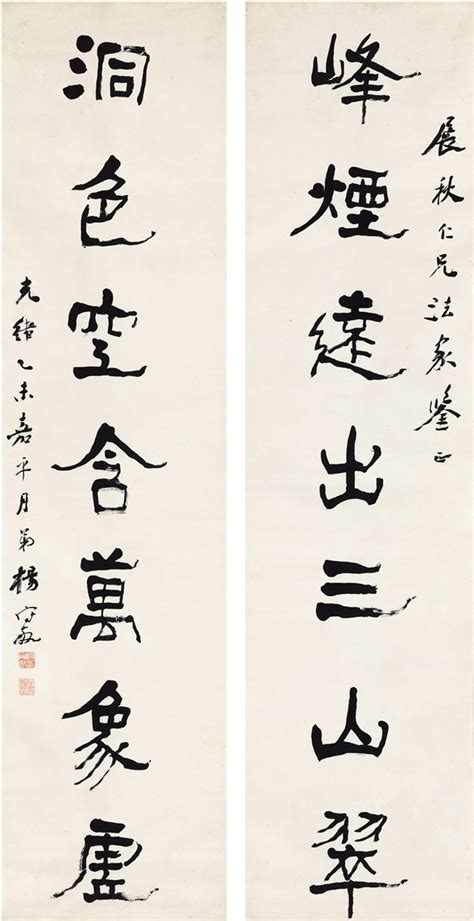 展秋仁兄法家鑒正
峰煙遠出三山翠
洞色空含萬象虛
光緒乙未嘉平月弟楊守敬